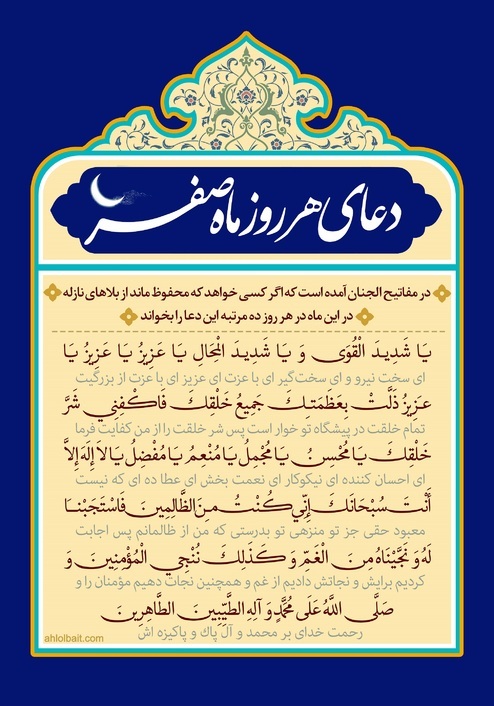 دعای هر روز ماه صفر
در مفاتیح الجنان آمده است که اگر کسی خواهد که محفوظ ماند از بلاهای نازله
در این ماه در هر روز ده مرتبه این دعا را بخواند
يَا شَدِيدَ الْقُوَى وَ يَا شَدِيدَ الْمِحَالِ يَا عَزِيزُ يَا عَزِيزُ يَا
ای سخت نیرو و ای سخت‌گیر ای با عزت ای عزیز ای با عزت از بزرگیت
عَزِيزُ ذَلَّتْ بِعَظَمَتِكَ جَمِيعُ خَلْقِكَ فَاكْفِنِي شَرَّ
تمام خلقت در پیشگاه تو خوار است پس شر خلقت را از من کفایت فرما
خَلْقِكَ يَا مُحْسِنُ يَا مُجْمِلُ يَا مُنْعِمُ يَا مُفْضِلُ يَا لاَ إِلَهَ إِلاَّ
ای احسان کننده ای نیکوکار ای نعمت بخش ای عطا ده ای که نیست
أَنْتَ سُبْحَانَكَ إِنِّي كُنْتُ مِنَ الظَّالِمِينَ فَاسْتَجَبْنَا
معبود حقی جز تو منزهی تو بدرستی که من از ظالمانم پس اجابت
لَهُ وَ نَجَّيْنَاهُ مِنَ الْغَمِّ وَ كَذَلِكَ نُنْجِي الْمُؤْمِنِينَ وَ
کردیم برایش و نجاتش دادیم از غم و همچنین نجات دهیم مؤمنان را و
صَلَّى اللَّهُ عَلَى مُحَمَّدٍ وَ آلِهِ الطَّيِّبِينَ الطَّاهِرِينَ
رحمت خدای بر محمد و آل پاك و پاکیزه اش
ahlolbait.com